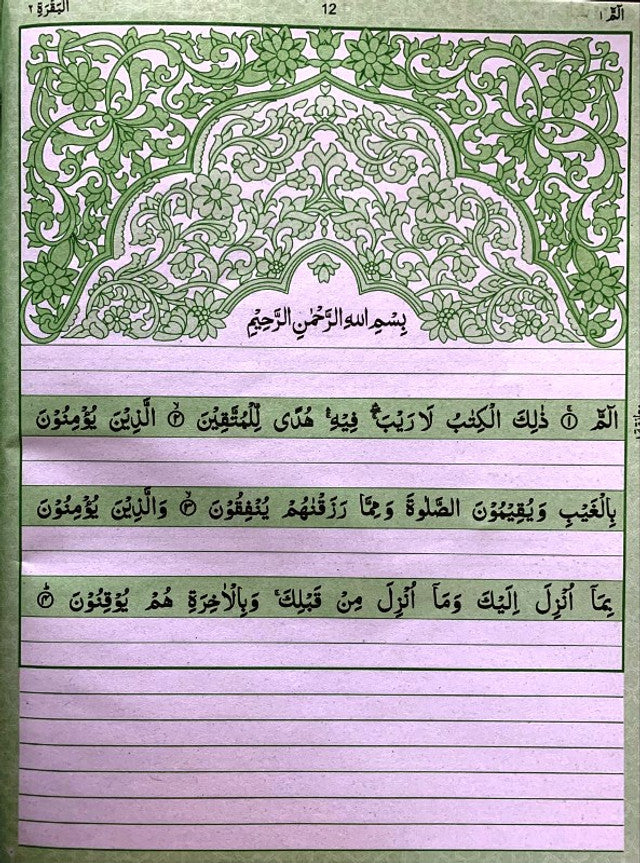 الٓمّٓ ١ 12 الْبَقَرَة ٢
بِسْمِ اللهِ الرَّحْمٰنِ الرَّحِيْمِ
الٓمّٓ ۚ﴿١﴾ ذٰلِكَ الْكِتٰبُ لَا رَيْبَ ۛۖ فِيْهِ ۛۚ هُدًى لِّلْمُتَّقِيْنَ ۙ﴿٢﴾ الَّذِيْنَ يُؤْمِنُوْنَ
بِالْغَيْبِ وَيُقِيْمُوْنَ الصَّلٰوةَ وَمِمَّا رَزَقْنٰهُمْ يُنْفِقُوْنَ ۙ﴿٣﴾ وَالَّذِيْنَ يُؤْمِنُوْنَ
بِمَآ اُنْزِلَ اِلَيْكَ وَمَآ اُنْزِلَ مِنْ قَبْلِكَ ۚ وَبِالْاٰخِرَةِ هُمْ يُوْقِنُوْنَ ؕ﴿٤﴾